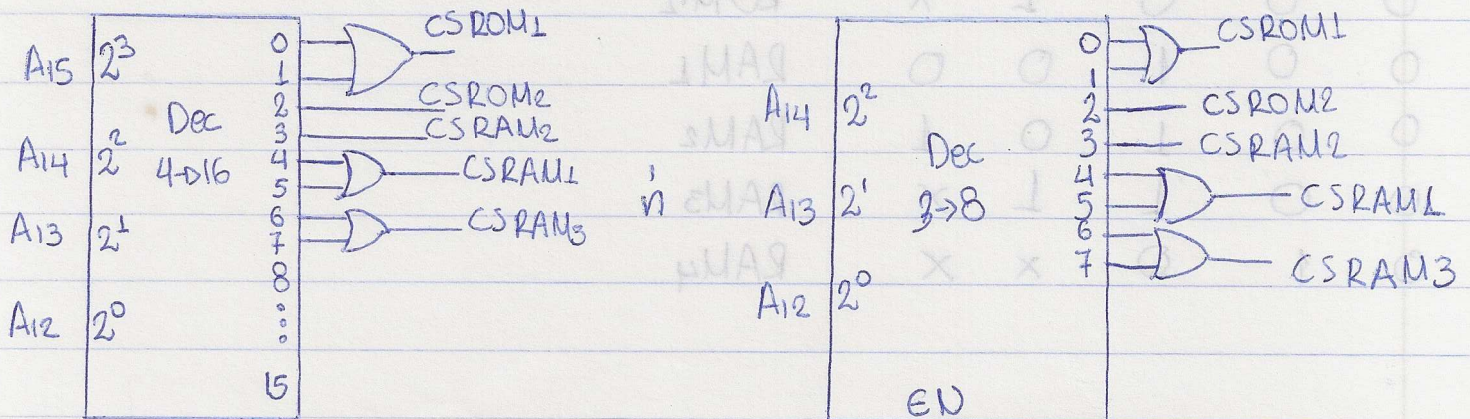 A15 2^3
Dec
4→16
A14 2^2
A13 2^1
A12 2^0
0
1
2
3
4
5
6
7
8
15
CSROM1
CSROM2
CSRAM2
CSRAM1
CSRAM3
ή
A14 2^2
Dec
3→8
A13 2^1
A12 2^0
EN
0
1
2
3
4
5
6
7
CSROM1
CSROM2
CSRAM2
CSRAM1
CSRAM3